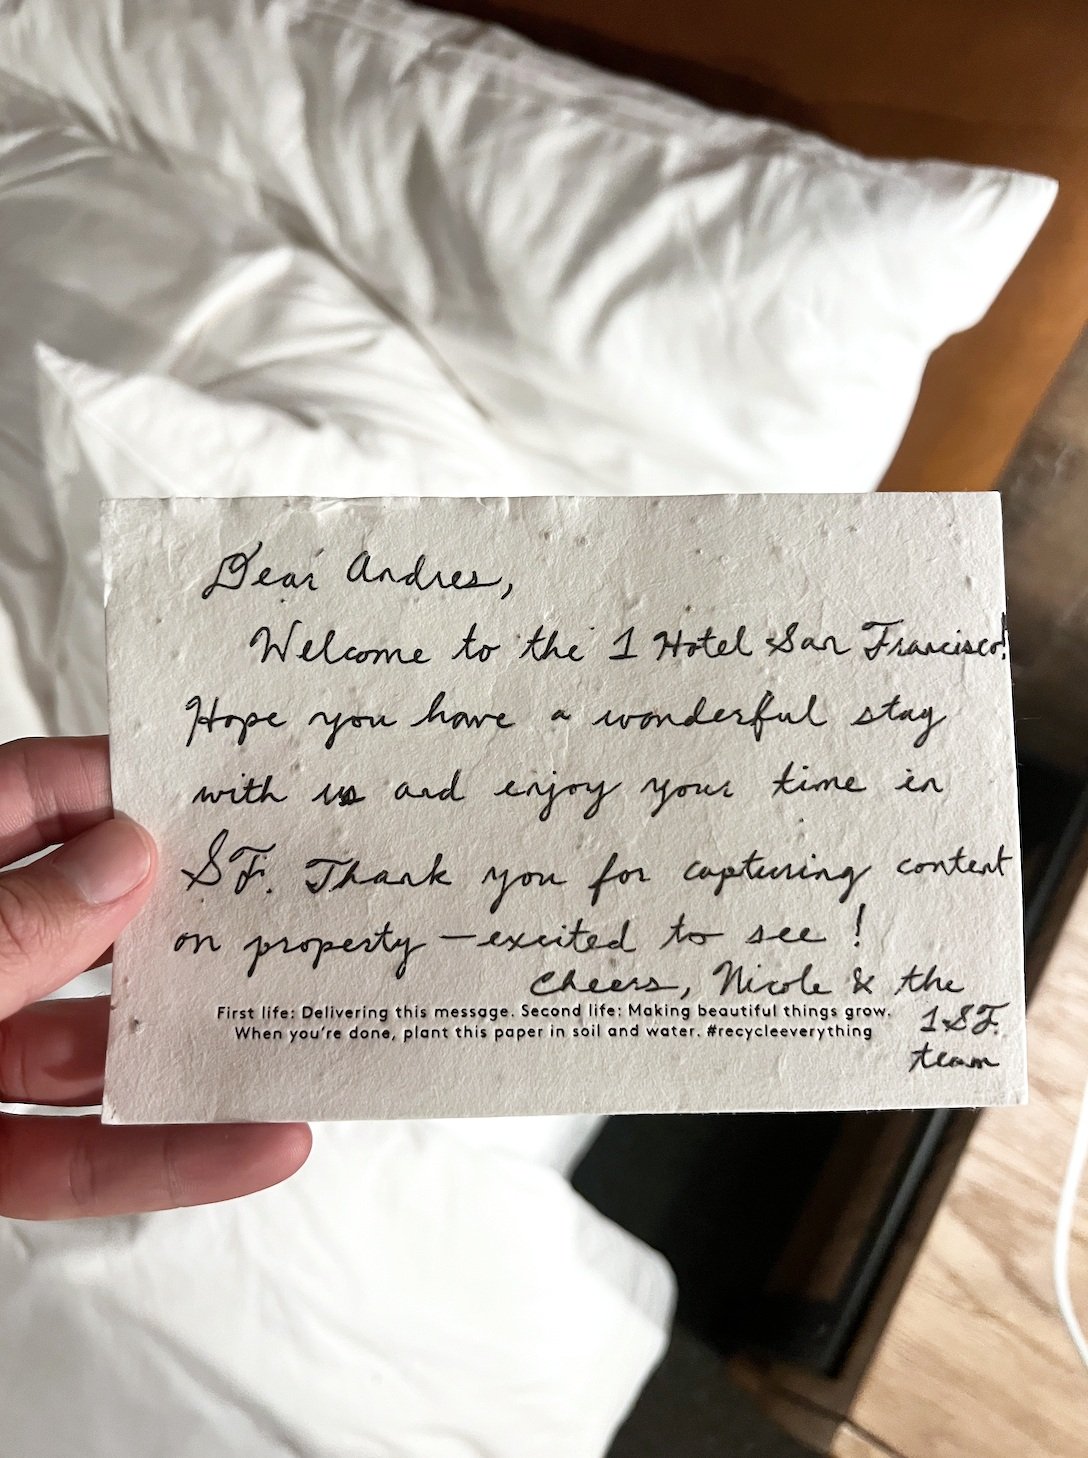 Dear Andres,
Welcome to the 1 Hotel San Francisco!
Hope you have a wonderful stay
with us and enjoy your time in
SF. Thank you for capturing content
on property — excited to see!
Cheers, Nicole & the
1 SF
team
First life: Delivering this message. Second life: Making beautiful things grow.
When you're done, plant this paper in soil and water. #recycleeverything